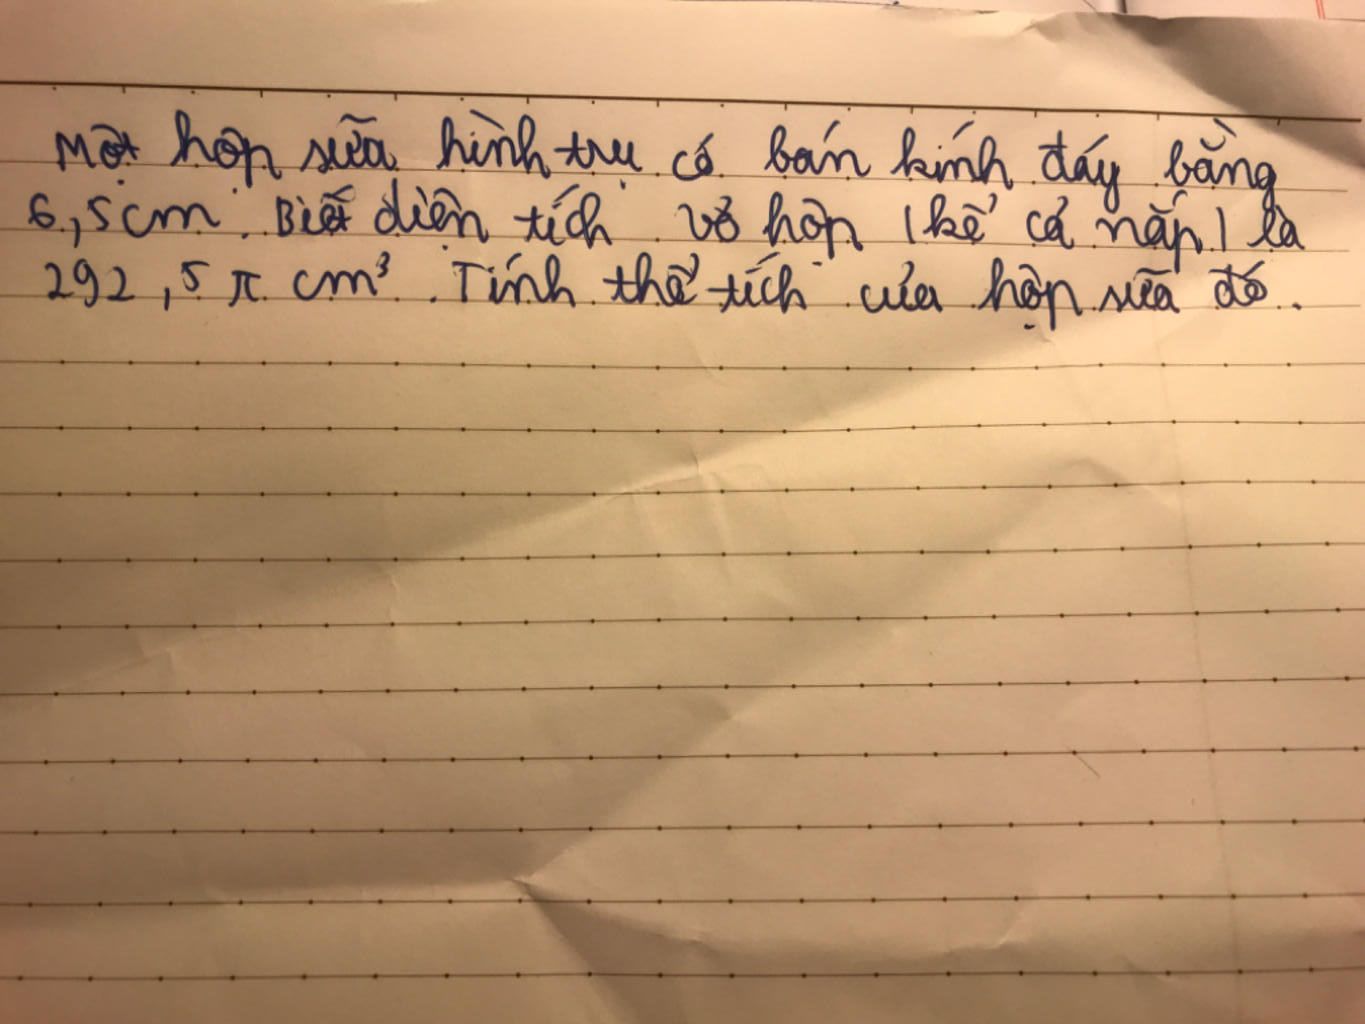 Một hộp sữa hình trụ có bán kính đáy bằng
6,5cm. Biết diện tích vỏ hộp (kể cả nắp) là
292,5 π cm³. Tính thể tích của hộp sữa đó.